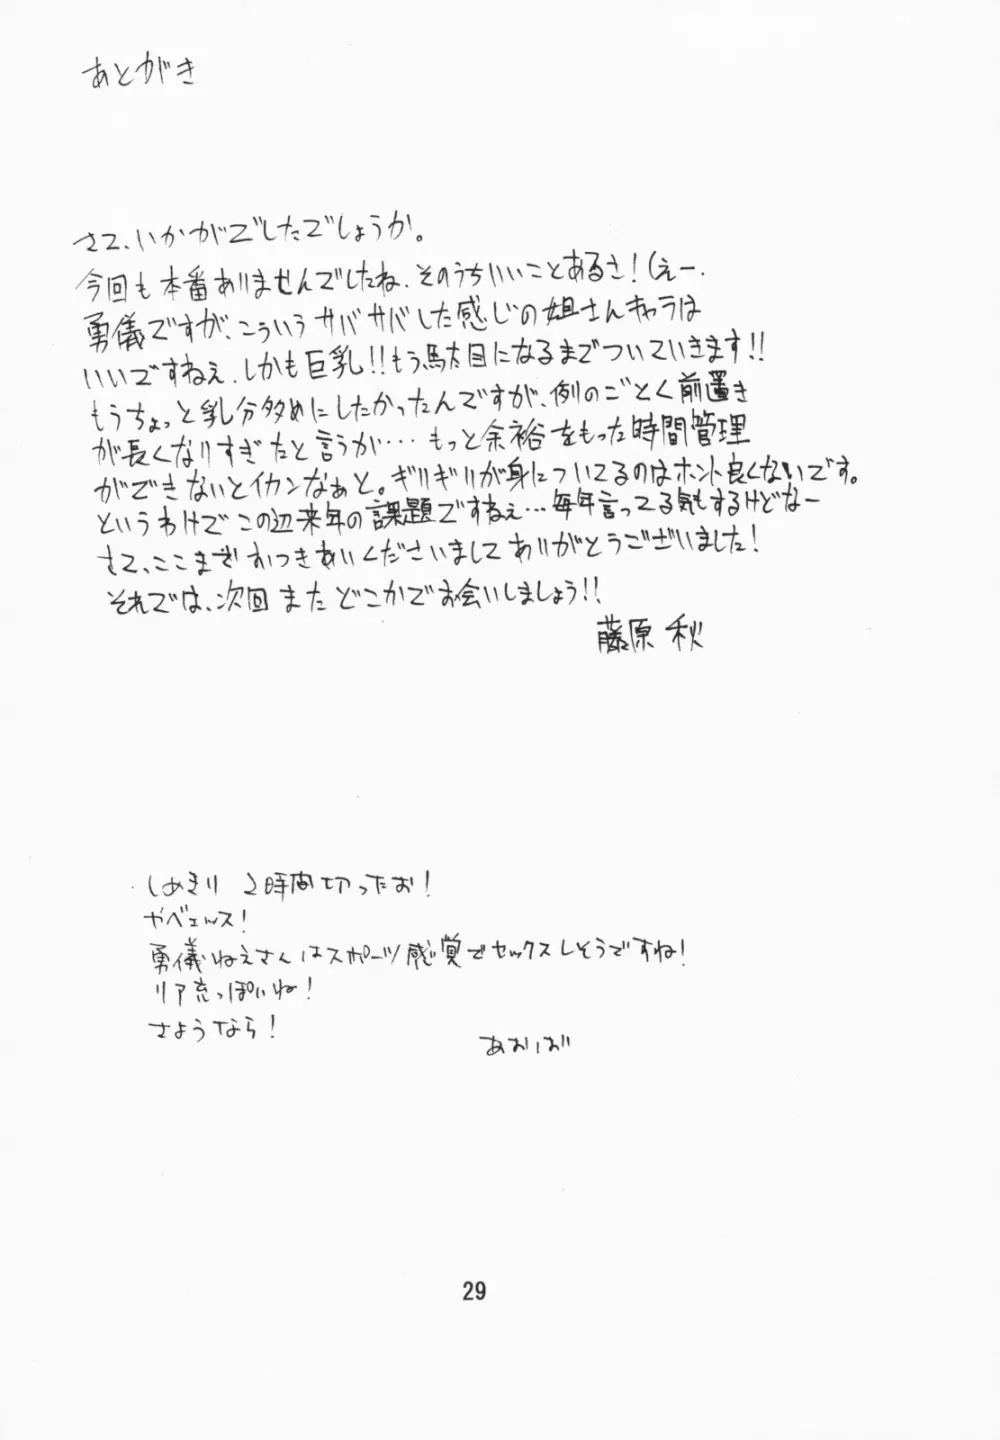 あとがき
さて、いかがでしたでしょうか。
今回も本番ありませんでしたね、そのうちいいことあるさ！(えー.
勇儀ですが、こういうサバサバした感じの姐さんキャラは
いいですねぇ、しかも巨乳!!もう駄目になるまでついていきます!!
もうちょっと乳分多めにしたかったんですが、例のごとく前置き
が長くなりすぎたと言うか…もっと余裕をもった時間管理
ができないとイカンなぁと。ギリギリが身についてるのはホント良くないです。
というわけでこの辺来年の課題ですねぇ…毎年言ってる気もするけどなー
さて、ここまでおつきあいくださいましてありがとうございました！
それでは、次回またどこかでお会いしましょう!!
藤原秋
しめきり2時間切ったお！
ヤベェッス！
勇儀ねえさんはスポーツ感覚でセックスしそうですね！
リア充っぽいね！
さようなら！
あおば
29